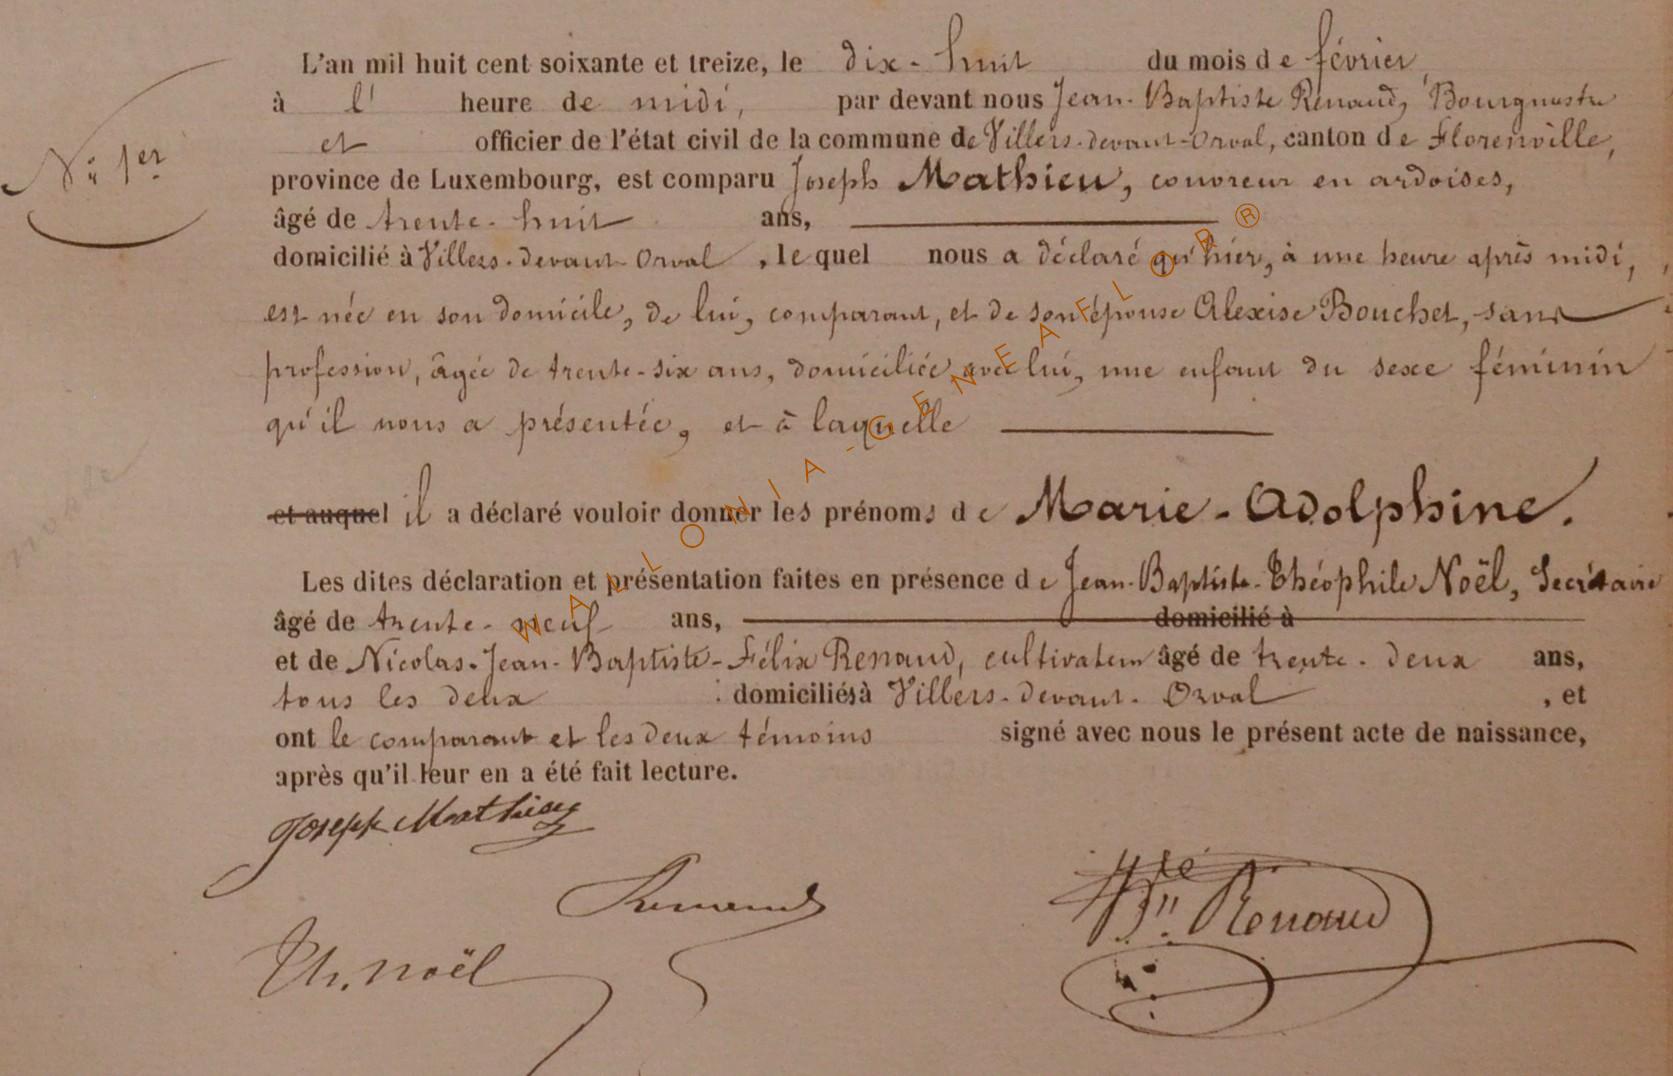 L'an mil huit cent soixante et treize, le dix-huit du mois de février,
à l' heure de midi, par devant nous Jean-Baptiste Renaud, Bourgmestre
et officier de l'état civil de la commune de Villers-devant-Orval, canton de Florenville,
N° 1er
province de Luxembourg, est comparu Joseph Mathieu, couvreur en ardoises,
âgé de trente-huit ans,
domicilié à Villers-devant-Orval, lequel nous a déclaré qu'hier, à une heure après midi,
est née en son domicile, de lui, comparant, et de son épouse Alexise Bouchet, sans
profession, âgée de trente-six ans, domiciliée avec lui, une enfant du sexe féminin
qu'il nous a présentée, et à laquelle
et auquel il a déclaré vouloir donner les prénoms de Marie-Adolphine.
Les dites déclaration et présentation faites en présence de Jean-Baptiste-Théophile Noël, Secrétaire
âgé de trente-neuf ans, domicilié à
et de Nicolas-Jean-Baptiste-Félix Renaud, cultivateur âgé de trente-deux ans,
tous les deux domiciliés à Villers-devant-Orval, et
ont le comparant et les deux témoins signé avec nous le présent acte de naissance,
après qu'il leur en a été fait lecture.
Joseph Mathieu
Renaud
Bte Renaud
Th. Noël
WALLONIA-GENEAFLOR®